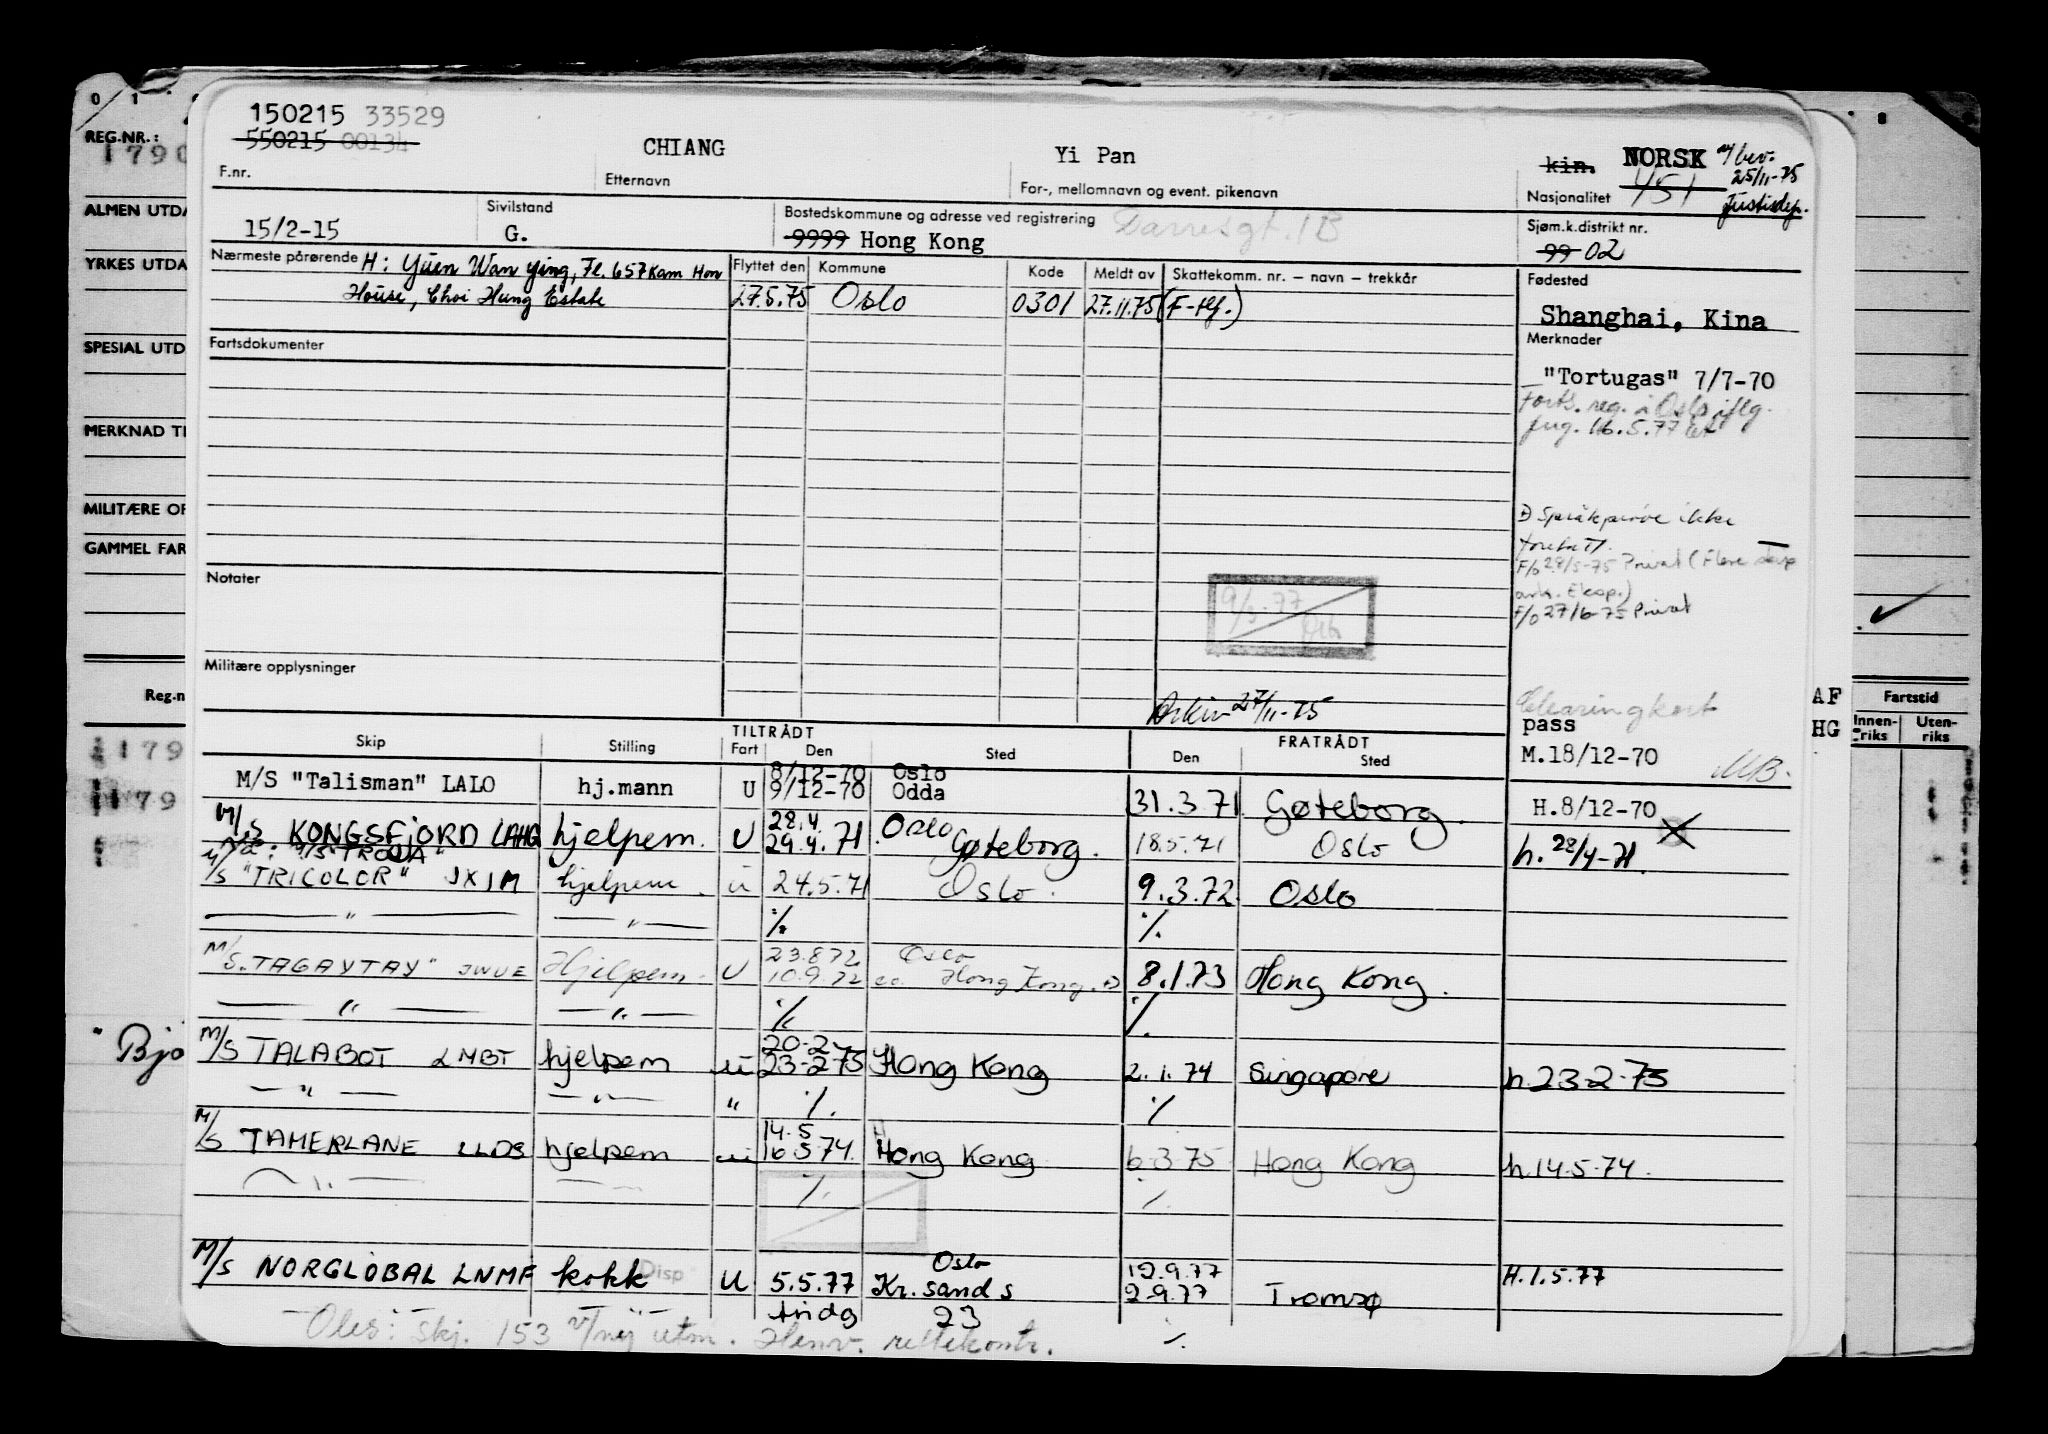 0 1
8
REG.NR.:
1790
ALMEN UTDA
YRKES UTDA
SPESIAL UTD
MERKNAD TI
MILITÆRE OP
GAMMEL FAR
Reg.n
179
179
"Bjo
150215 33529
550215 00134
F.nr.
CHIANG
Etternavn
Yi Pan
For-, mellomnavn og event. pikenavn
kin. NORSK
Nasjonalitet 451
m/bev. 25/11-75 Justisdep.
15/2-15
Sivilstand
G.
Bostedskommune og adresse ved registrering
9999 Hong Kong
Sjøm.k.distrikt nr.
99 02
Nærmeste pårørende H: Yuen Wan Ying, Fl. 657 Kam Hon
House, Choi Hung Estate
Flyttet den Kommune Kode Meldt av Skattekomm. nr. — navn — trekkår
27.5.75 Oslo 0301 27.11.75 (F-flf.)
Fødested
Shanghai, Kina
Fartsdokumenter
Merknader
"Tortugas" 7/7-70
Forts. reg. i Oslo iflg.
fmg. 16.5.77
Språkprøve ikke
foretatt.
F/o 28/5-75 Privat (Flere
ark. Eksp.)
F/o 27/6-75 Privat
Notater
9/3-77
Militære opplysninger
Arkiv 27/11-75
Clearingkort
pass
M.18/12-70
AF
HG
Fartstid
Innenriks
Utenriks
Skip Stilling TILTRÅDT Fart Den Sted FRATRÅDT Den Sted
M/S "Talisman" LALO hj.mann U 8/12-70 9/12-70 Oslo Odda 31.3.71 Gøteborg. H.8/12-70
M/S KONGSFJORD LAHG hjelpem. U 28.4. 29.4.71 Oslo Gøteborg. 18.5.71 Oslo h. 28/4-71.
M/S "TROJA"
M/S "TRICOLOR" JXIM hjelpem. u 24.5.71 Oslo. 9.3.72 Oslo
— " — — " — ⁒ ⁒
M/S "TAGAYTAY" JWUE Hjelpem. U 23.8.72 10.9.72 Oslo Hong Kong. 8.1.73 Hong Kong.
— " — — " — ⁒ ⁒
M/S TALABOT LMBT hjelpem u 20-2 23-2-75 Hong Kong 2.1.74 Singapore h.23-2-73
— " — — " — " ⁒ ⁒
M/S TAMERLANE LLDS hjelpem u 14.5 16.5.74. Hong Kong 6.3.75 Hong Kong h.14.5.74.
— " — ⁒ ⁒
M/S NORGLOBAL LNMF kokk Disp U 5.5.77 Oslo Kr.sand s 12.9.77 2.9.77 Tromsø H.1.5.77
23 ⁒